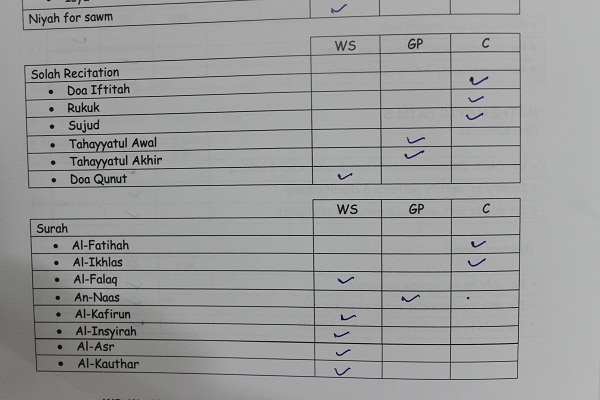 Niyah for sawm ✓
WS GP C
Solah Recitation
• Doa Iftitah ✓
• Rukuk ✓
• Sujud ✓
• Tahayyatul Awal ✓
• Tahayyatul Akhir ✓
• Doa Qunut ✓
WS GP C
Surah
• Al-Fatihah ✓
• Al-Ikhlas ✓
• Al-Falaq ✓
• An-Naas ✓
• Al-Kafirun ✓
• Al-Insyirah ✓
• Al-Asr ✓
• Al-Kauthar ✓